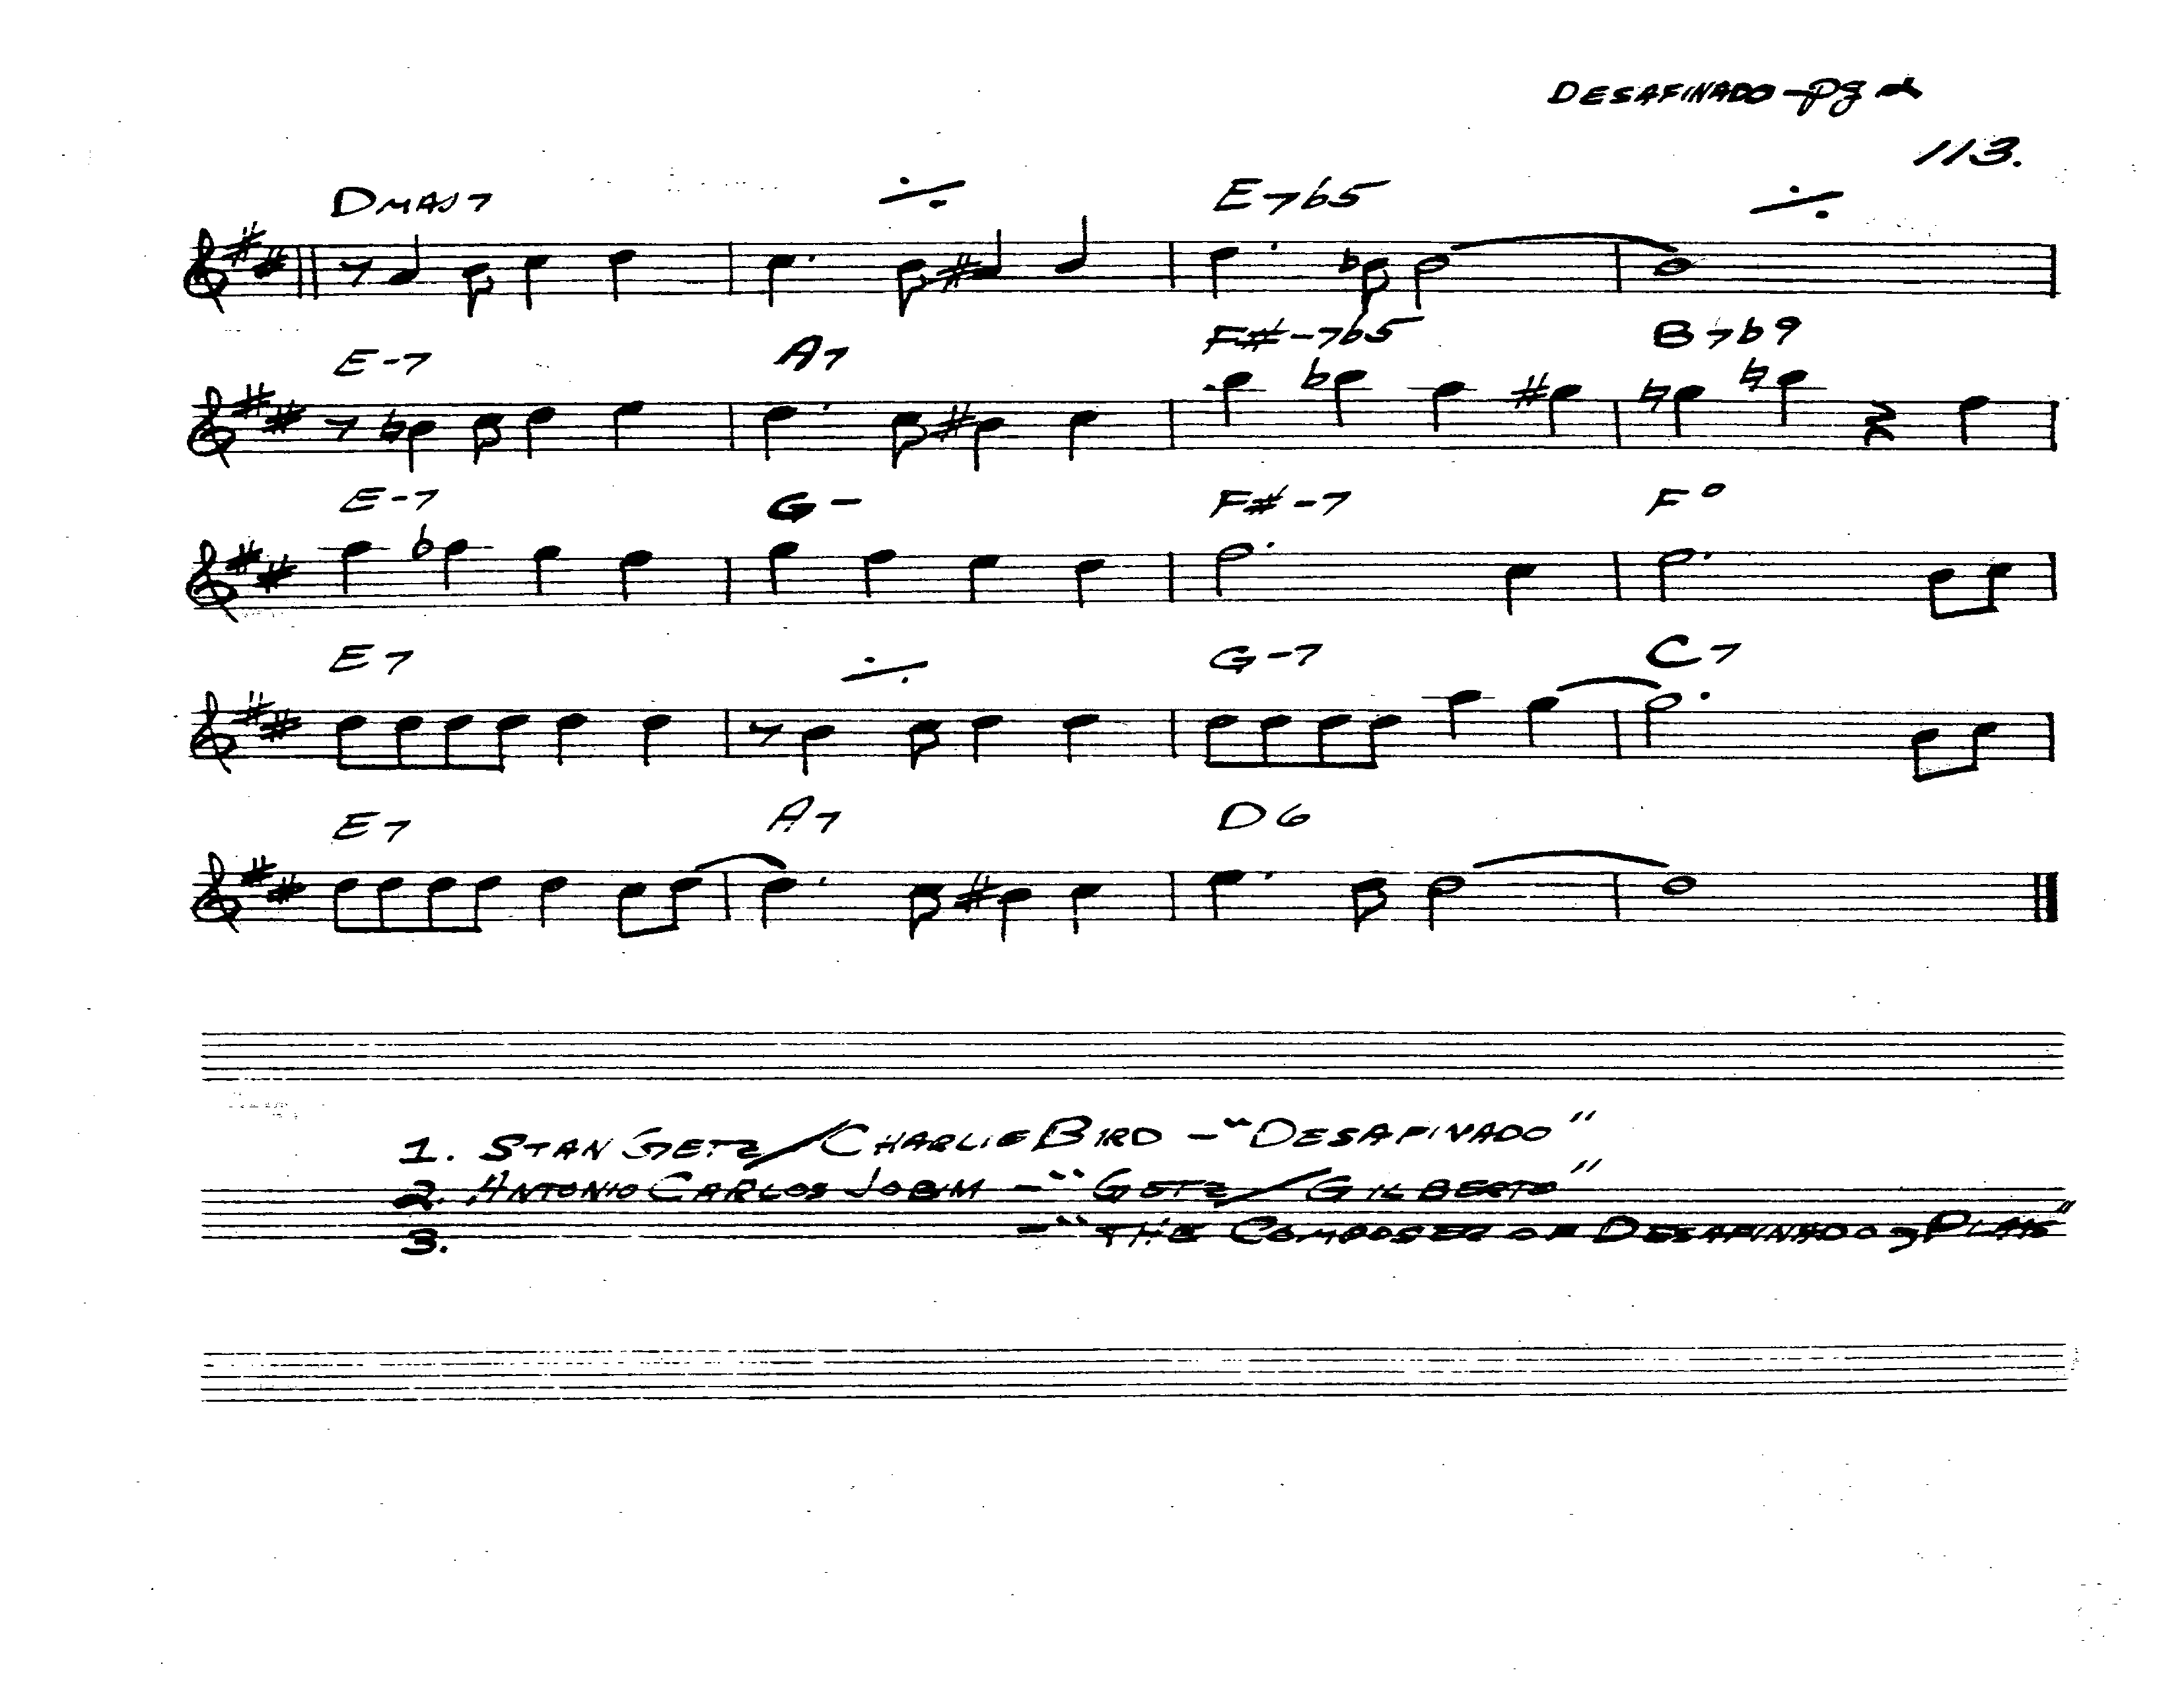 DESAFINADO - pg 2
113.
DMAJ7 E7b5
E-7 A7 F#-7b5 B7b9
E-7 G- F#-7 F°
E7 G-7 C7
E7 A7 D6
1. STAN GETZ/CHARLIE BIRD - "DESAFINADO"
2. ANTONIO CARLOS JOBIM - "GETZ/GILBERTO"
3. - "THE COMPOSER OF DESAFINADO, PLAYS"